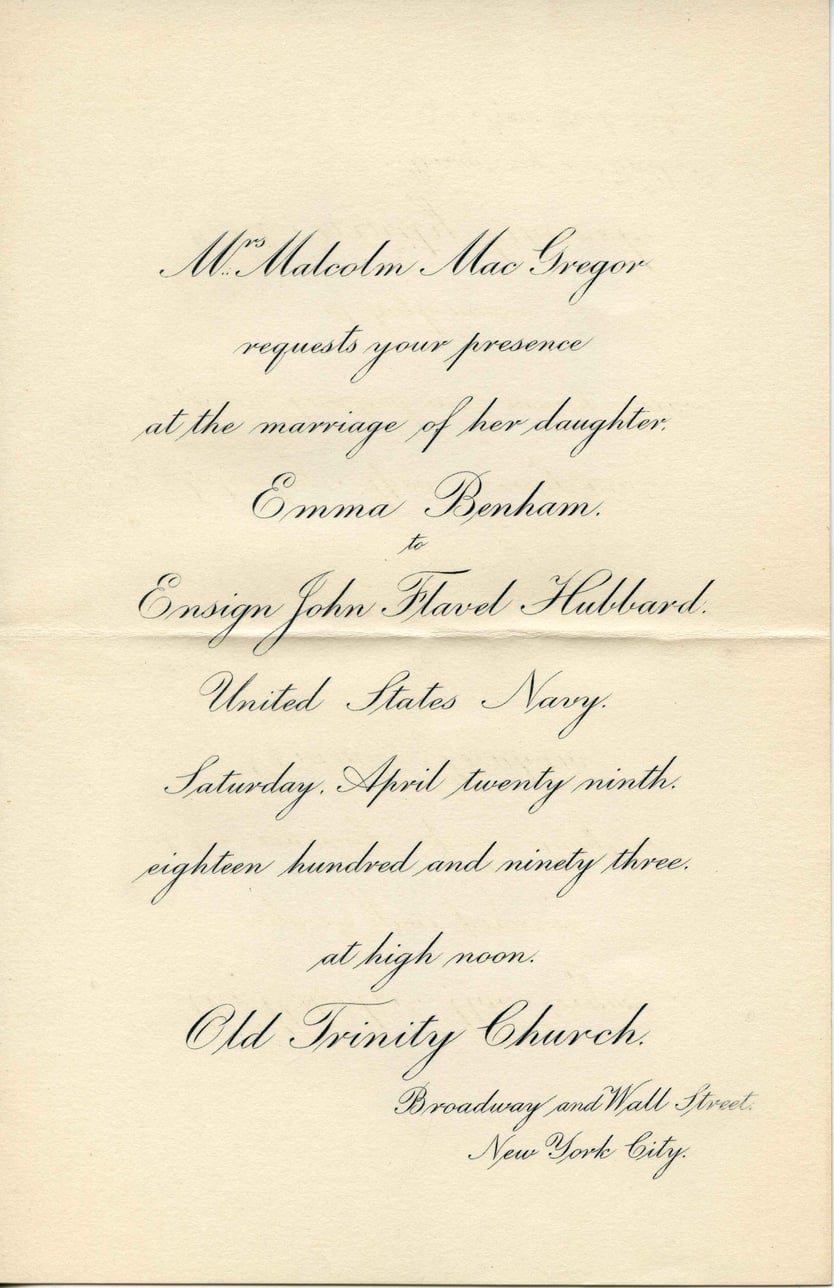 Mrs. Malcolm Mac Gregor
requests your presence
at the marriage of her daughter,
Emma Benham.
to
Ensign John Flavel Hubbard.
United States Navy.
Saturday, April twenty ninth.
eighteen hundred and ninety three.
at high noon.
Old Trinity Church.
Broadway and Wall Street.
New York City.